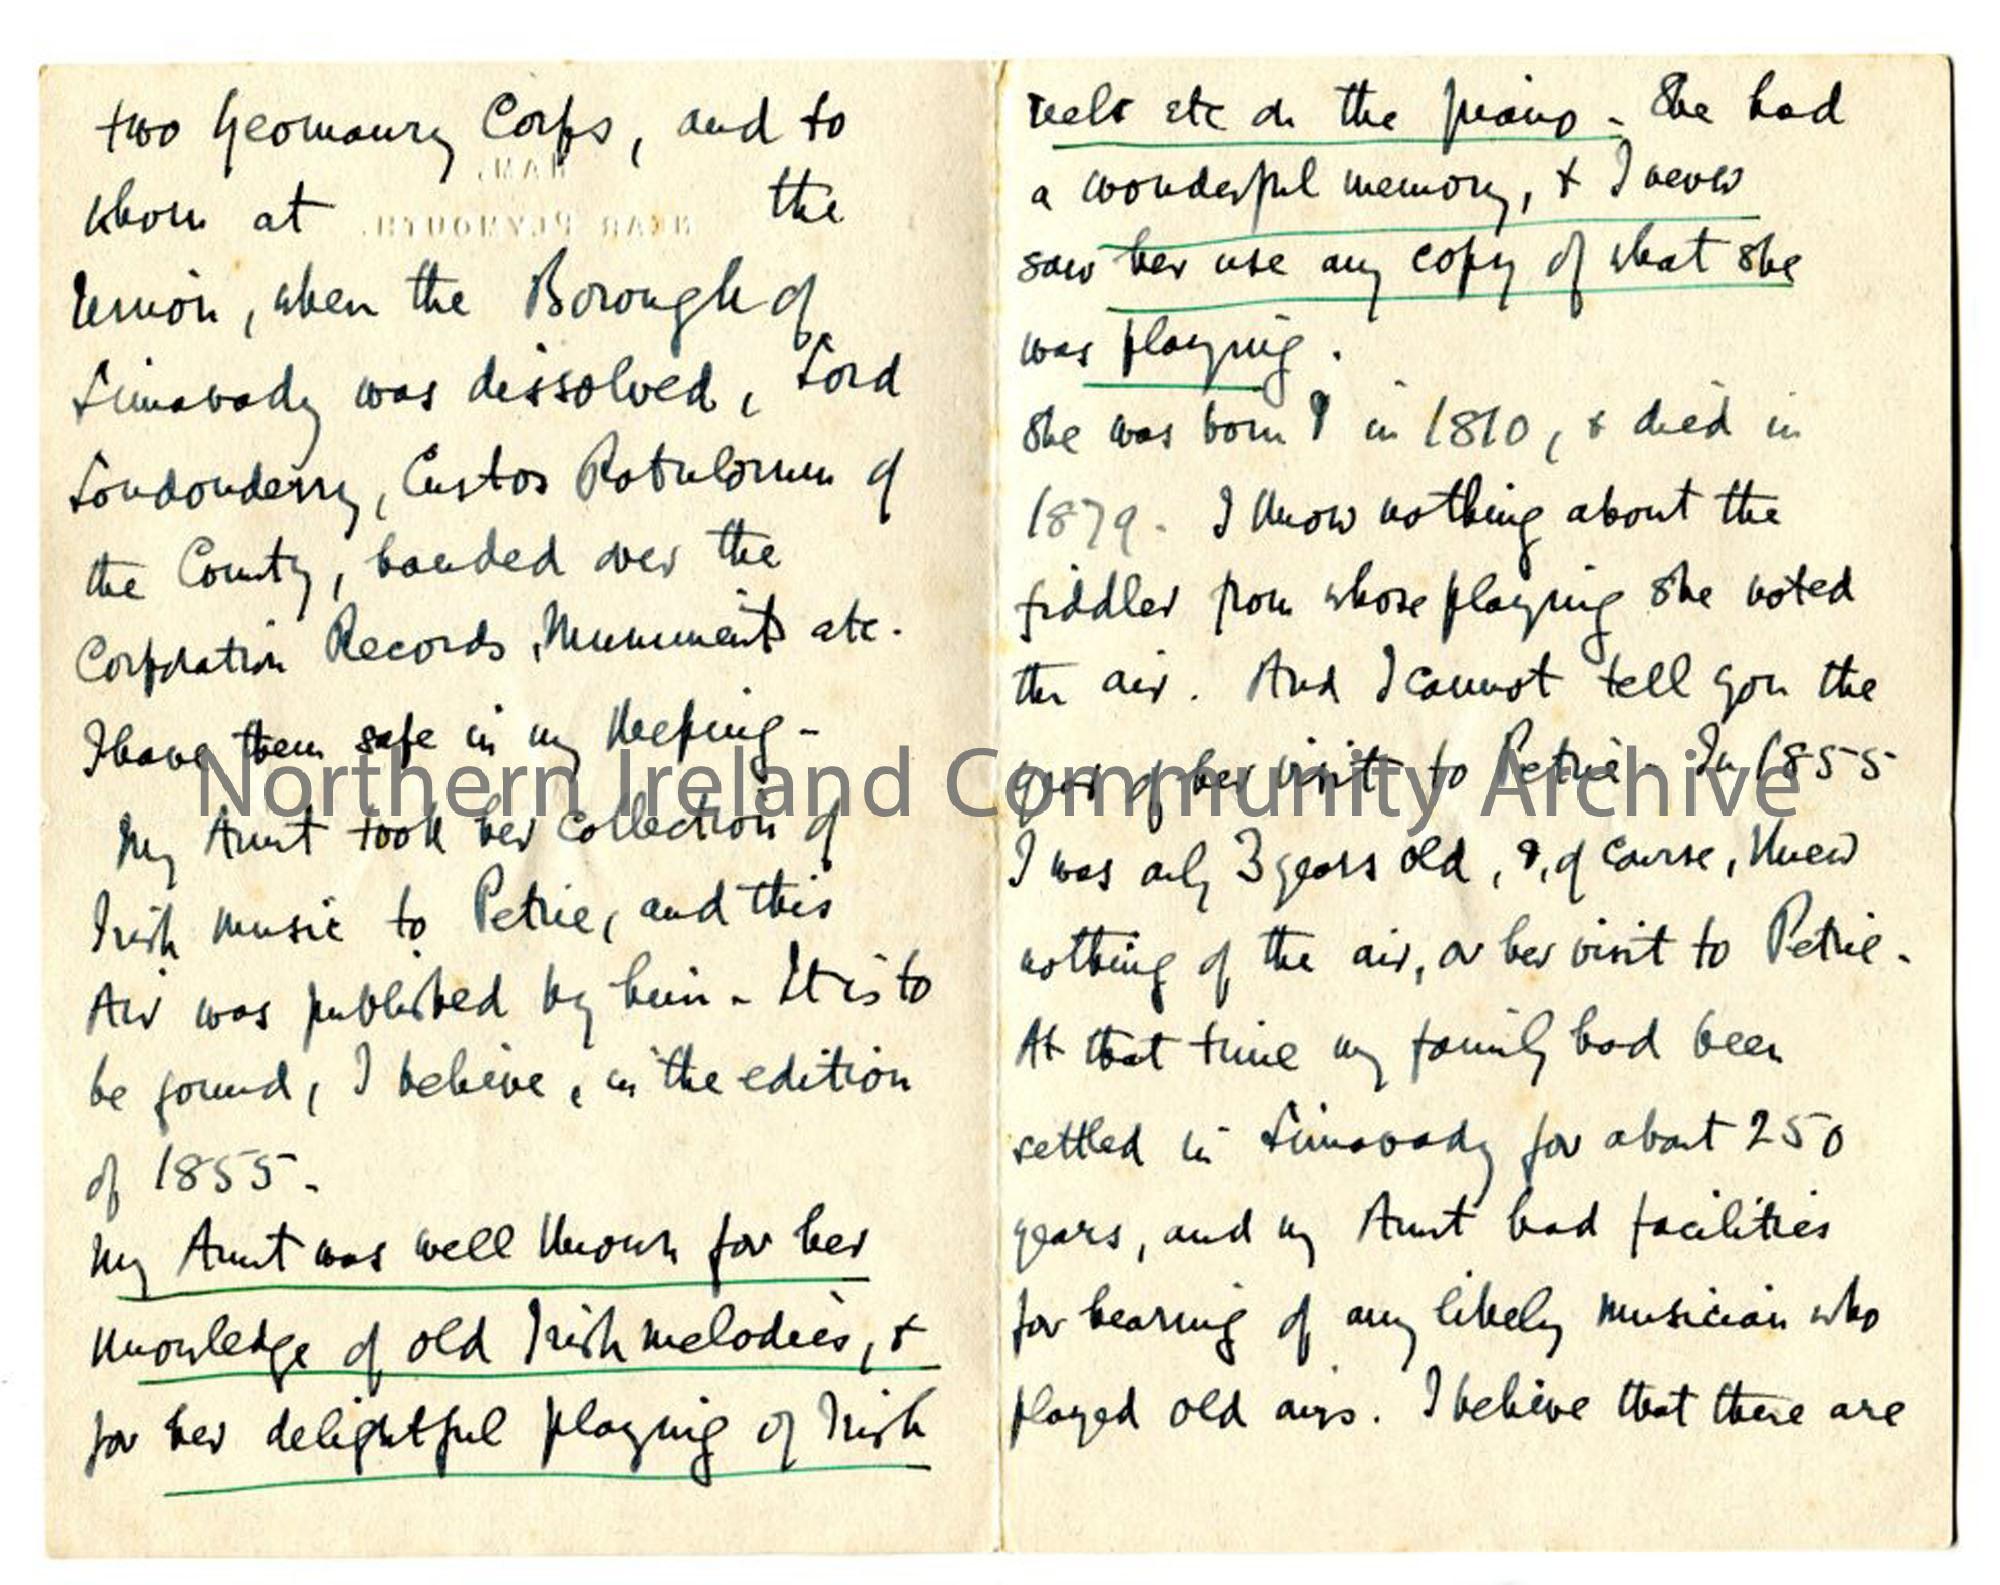 two Yeomanry Corps, and to
whom at the
Union, when the Borough of
Limavady was dissolved, Lord
Londonderry, Custos Rotulorum of
the County, handed over the
Corporation Records, Muniments etc.
I have them safe in my keeping -
My Aunt took her collection of
Irish music to Petrie, and this
Air was published by him - It is to
be found, I believe, in the edition
of 1855 -
My Aunt was well known for her
knowledge of old Irish melodies, &
for her delightful playing of Irish
reels etc on the piano - She had
a wonderful memory, & I never
saw her use any copy of what she
was playing.
She was born in 1810, & died in
1879 - I know nothing about the
fiddler from whose playing she noted
the air. And I cannot tell you the
year of her visit to Petrie - In 1855
I was only 3 years old, &, of course, knew
nothing of the air, or her visit to Petrie -
At that time my family had been
settled in Limavady for about 250
years, and my Aunt had facilities
for hearing of any likely musician who
played old airs. I believe that there are
HAM,
NEAR PLYMOUTH.
Northern Ireland Community Archive